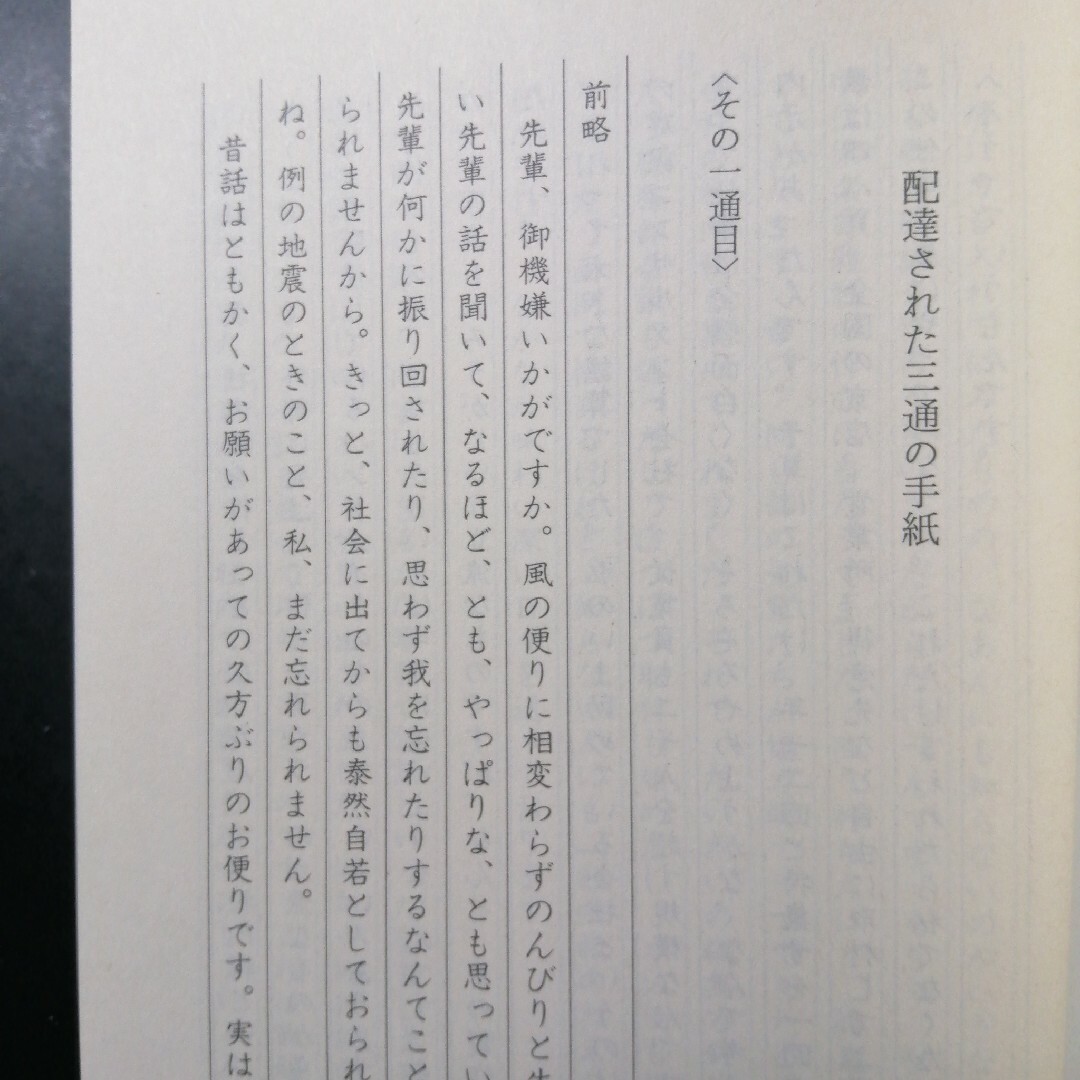 配達された三通の手紙
〈その一通目〉
前略
先輩、御機嫌いかがですか。風の便りに相変わらずのんびりと
い先輩の話を聞いて、なるほど、とも、やっぱりな、とも思ってい
先輩が何かに振り回されたり、思わず我を忘れたりするなんてこと
られませんから。きっと、社会に出てからも泰然自若としておられ
ね。例の地震のときのこと、私、まだ忘れられません。
昔話はともかく、お願いがあっての久方ぶりのお便りです。実は